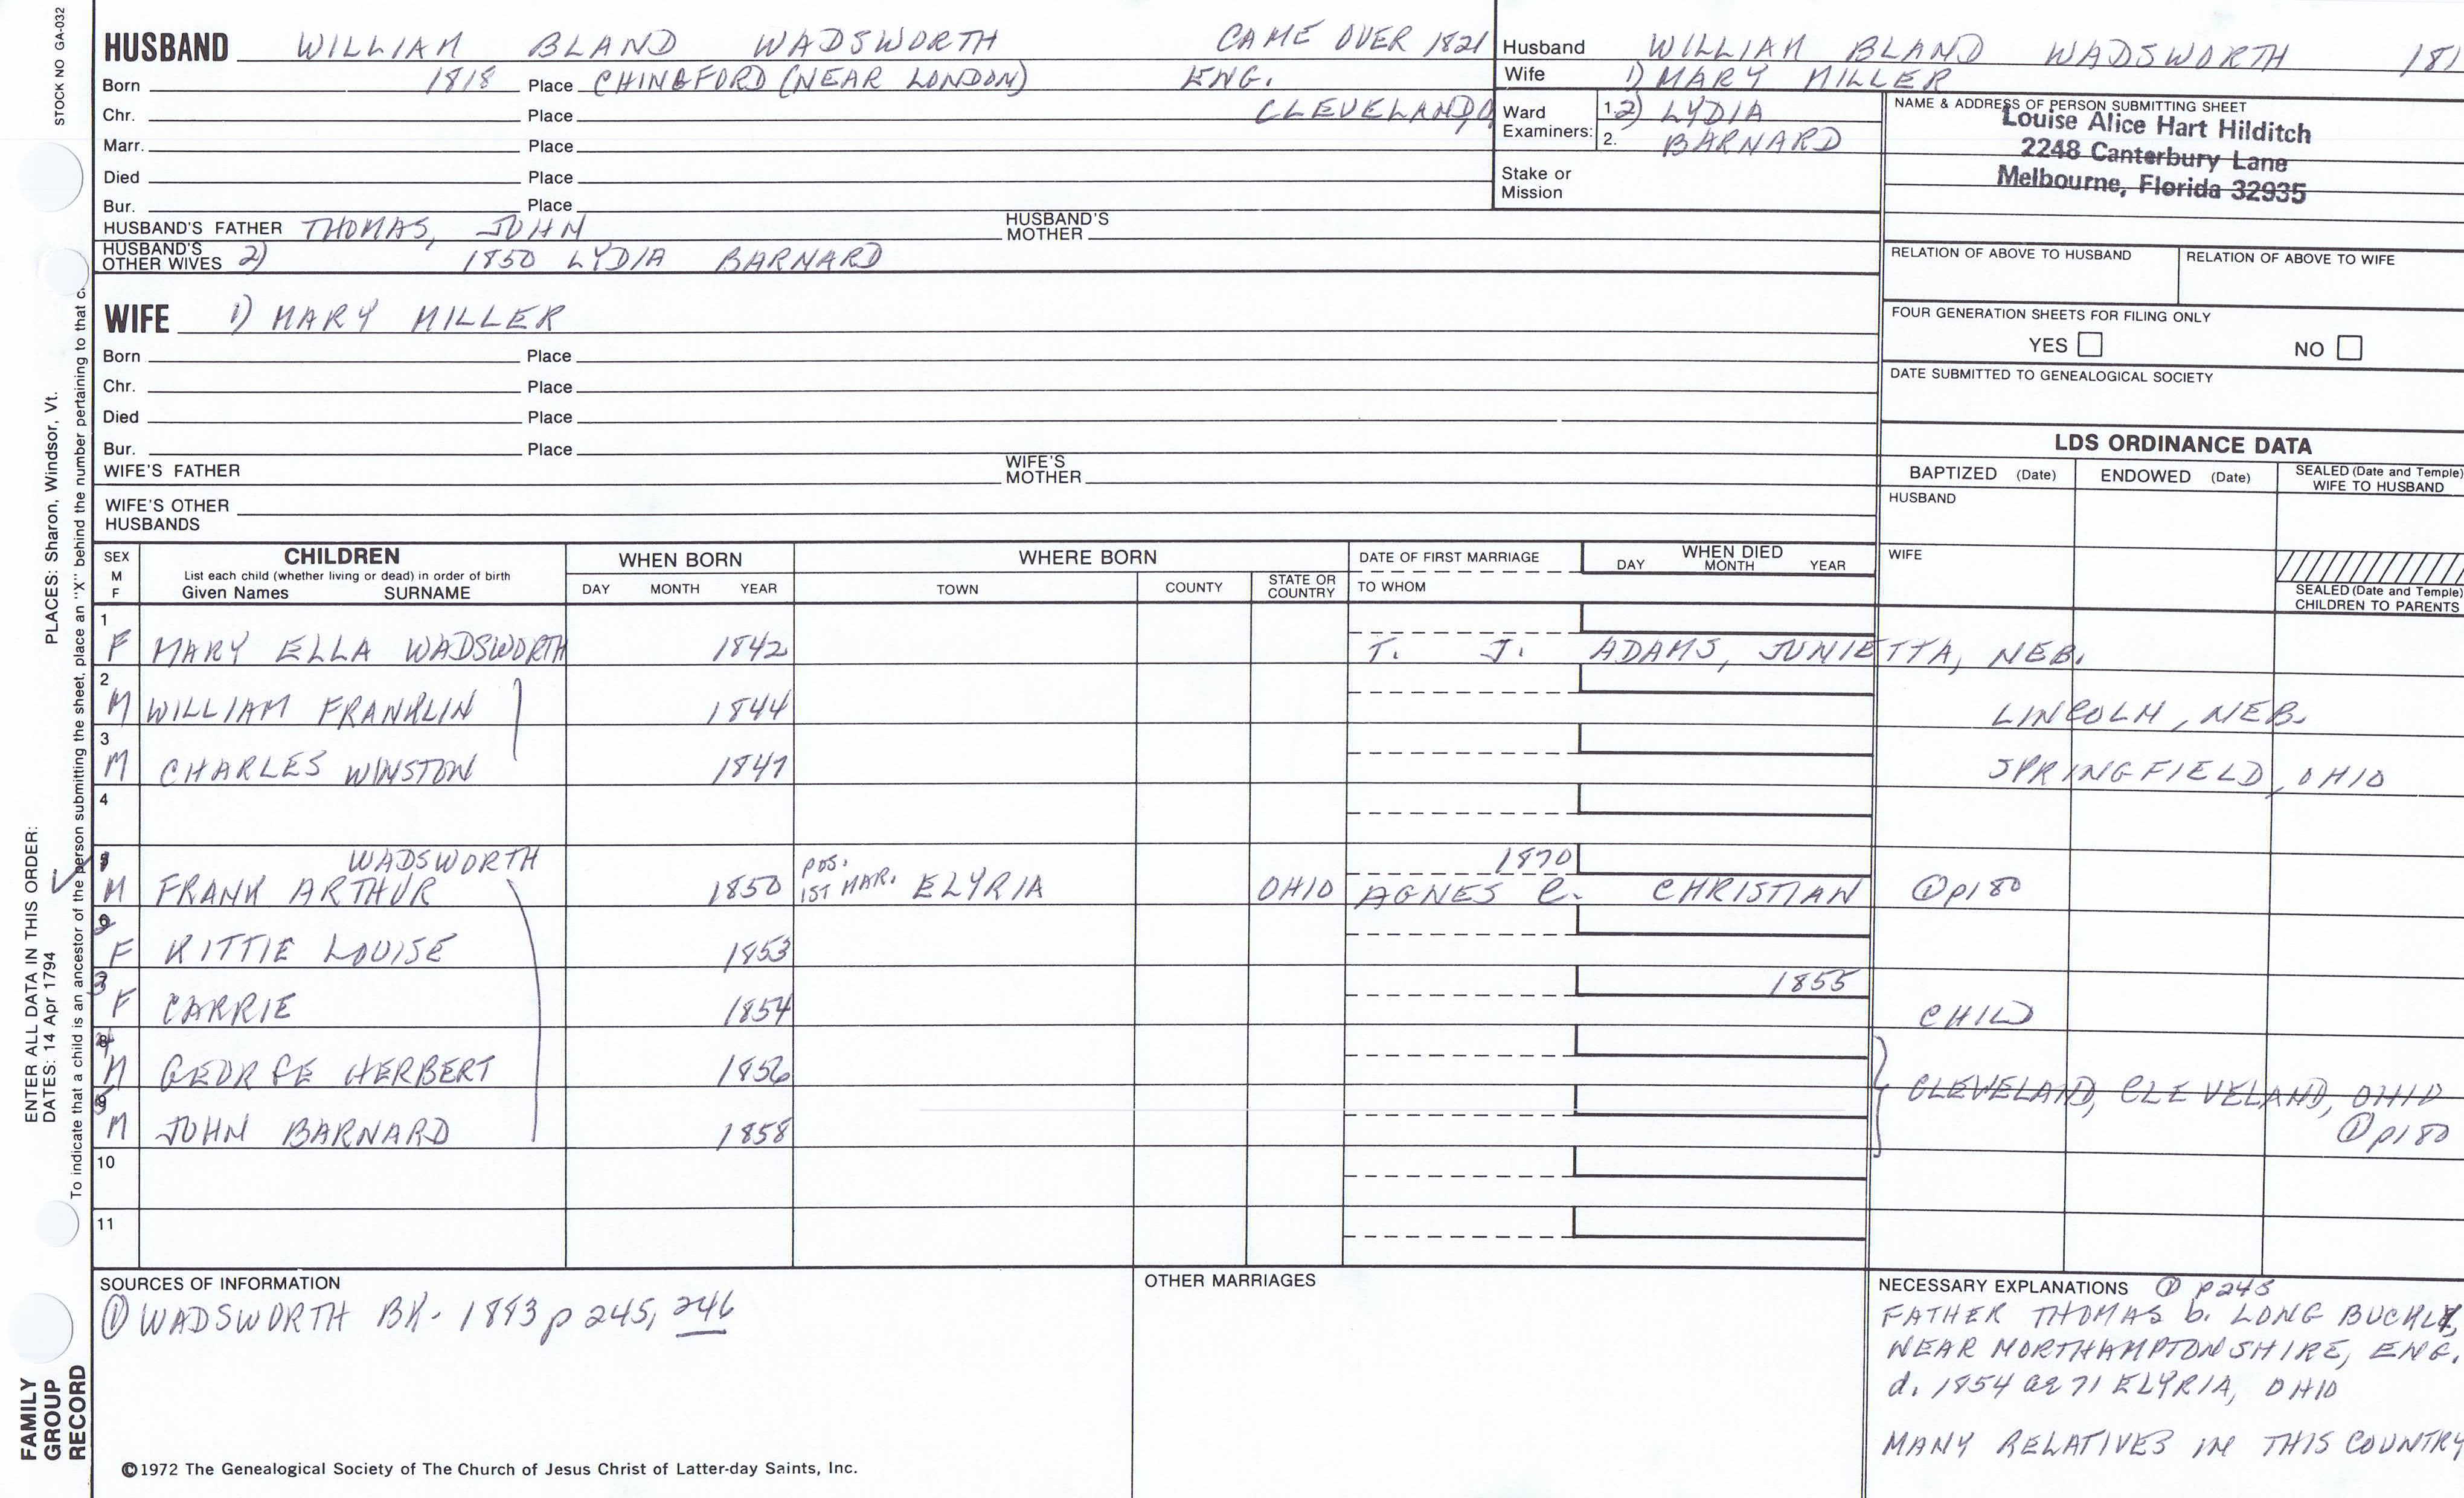 STOCK NO GA-032
HUSBAND WILLIAM BLAND WADSWORTH CAME OVER 1821
Born 1818 Place CHINGFORD (NEAR LONDON) ENG.
Chr. Place CLEVELAND, O
Marr. Place
Died Place
Bur. Place
HUSBAND'S FATHER THOMAS, JOHN HUSBAND'S MOTHER
HUSBAND'S OTHER WIVES 2) 1850 LYDIA BARNARD
WIFE 1) MARY MILLER
Born Place
Chr. Place
Died Place
Bur. Place
WIFE'S FATHER WIFE'S MOTHER
WIFE'S OTHER HUSBANDS
Husband WILLIAM BLAND WADSWORTH 181
Wife 1) MARY MILLER
Ward Examiners: 1. 2) LYDIA
2. BARNARD
Stake or Mission
NAME & ADDRESS OF PERSON SUBMITTING SHEET
Louise Alice Hart Hilditch
2248 Canterbury Lane
Melbourne, Florida 32935
RELATION OF ABOVE TO HUSBAND RELATION OF ABOVE TO WIFE
FOUR GENERATION SHEETS FOR FILING ONLY
YES NO
DATE SUBMITTED TO GENEALOGICAL SOCIETY
LDS ORDINANCE DATA
BAPTIZED (Date) ENDOWED (Date) SEALED (Date and Temple) WIFE TO HUSBAND
HUSBAND
WIFE
SEALED (Date and Temple) CHILDREN TO PARENTS
SEX M F CHILDREN WHEN BORN WHERE BORN DATE OF FIRST MARRIAGE WHEN DIED
List each child (whether living or dead) in order of birth
Given Names SURNAME DAY MONTH YEAR TOWN COUNTY STATE OR COUNTRY TO WHOM DAY MONTH YEAR
1 F MARY ELLA WADSWORTH 1842 T. J. ADAMS, JUNIETTA, NEB.
2 M WILLIAM FRANKLIN 1844 LINCOLN, NEB.
3 M CHARLES WINSTON 1847 SPRINGFIELD, OHIO
4
WADSWORTH pos. 1870
M FRANK ARTHUR 1850 1ST MAR. ELYRIA OHIO AGNES C. CHRISTIAN ① p180
F KITTIE LOUISE 1853
3 F CARRIE 1854 1855 CHILD
M GEORGE HERBERT 1856 CLEVELAND, CLEVELAND, OHIO
M JOHN BARNARD 1858 ① p180
10
11
SOURCES OF INFORMATION
① WADSWORTH BK. 1883 p 245, 246
OTHER MARRIAGES
NECESSARY EXPLANATIONS ① p245
FATHER THOMAS b. LONG BUCKLY,
NEAR NORTHAMPTONSHIRE, ENG.
d. 1854 ae 71 ELYRIA, OHIO
MANY RELATIVES IN THIS COUNTRY
©1972 The Genealogical Society of The Church of Jesus Christ of Latter-day Saints, Inc.
FAMILY
GROUP
RECORD
ENTER ALL DATA IN THIS ORDER:
DATES: 14 Apr 1794 PLACES: Sharon, Windsor, Vt.
To indicate that a child is an ancestor of the person submitting the sheet, place an "X" behind the number pertaining to that c